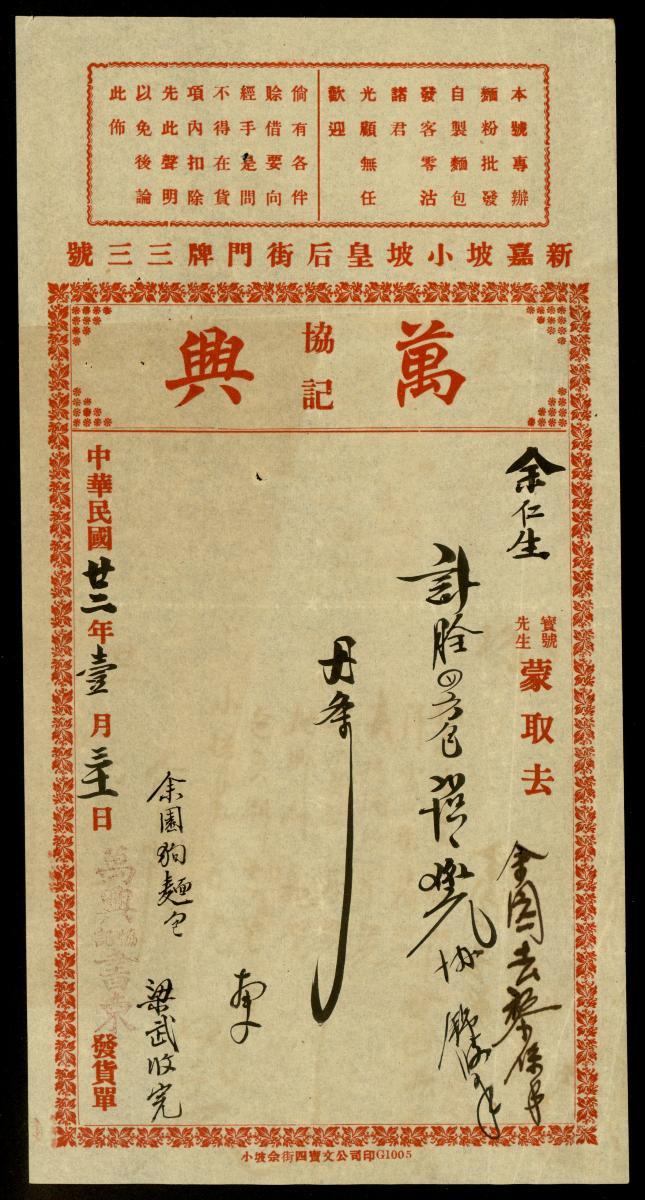 本號專辦
麵粉批發
自製麵包
發客零沽
諸君
光顧無任
歡迎
倘有各伴
賒借要向
經手是問
不得在貨
項內扣除
先此聲明
以免後論
此佈
新嘉坡小坡皇后街門牌三三號
萬興
協記
余仁生
寶號
先生
蒙取去
丹條
余園狗麵包
梁武收完
中華民國廿二年壹月三十日
萬興
協記
書柬
發貨單
小坡余街四寶文公司印G1005